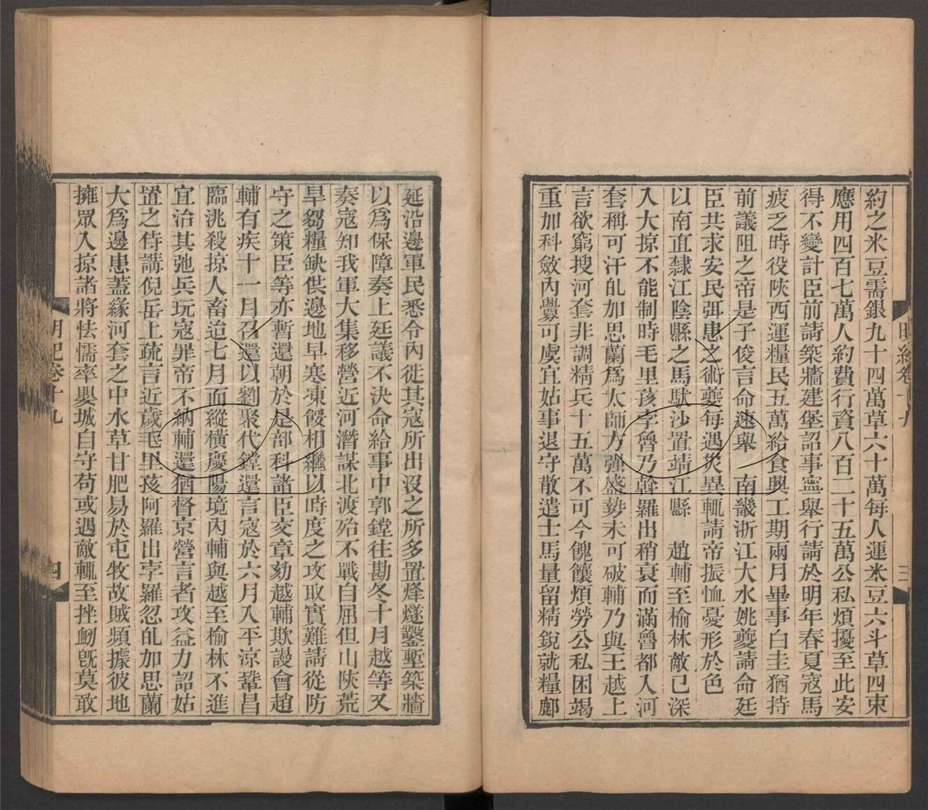 約之米豆需銀九十四萬草六十萬每人運米豆六斗草四束
應用四百七萬人約費行資八百二十五萬公私煩擾至此安
得不變計臣前請築牆建堡詔事寧舉行請於明年春夏寇馬
疲乏時役陝西運糧民五萬給食興工期兩月畢事白圭猶持
前議阻之帝是子俊言命速舉 南畿浙江大水姚夔請命廷
臣共求安民弭患之術夔每遇災異輒請帝振恤憂形於色
以南直隸江陰縣之馬馱沙置靖江縣 趙輔至榆林敵已深
入大掠不能制時毛里孩孛魯乃斡羅出稍衰而滿魯都入河
套稱可汗癿加思蘭爲太師方強盛勢未可破輔乃與王越上
言欲窮搜河套非調精兵十五萬不可今餽饟煩勞公私困竭
重加科斂內釁可虞宜姑事退守散遣士馬量留精銳就糧鄜
三
延沿邊軍民悉令內徙其寇所出沒之所多置烽燧鑿塹築牆
以爲保障奏上廷議不決命給事中郭鏜往勘冬十月越等又
奏寇知我軍大集移營近河潛謀北渡殆不戰自屈但山陝荒
旱芻糧缺供邊地早寒凍餒相繼以時度之攻取實難請從防
守之策臣等亦暫還朝於是部科諸臣交章劾越輔欺謾會趙
輔有疾十一月召還以劉聚代鏜還言寇於六月入平涼鞏昌
臨洮殺掠人畜迨七月而縱橫慶陽境內輔與越至榆林不進
宜治其弛兵玩寇罪帝不納輔還猶督京營言者攻益力詔姑
置之侍講倪岳上疏言近歲毛里孩阿羅出孛羅忽癿加思蘭
大爲邊患蓋緣河套之中水草甘肥易於屯牧故賊頻據彼地
擁眾入掠諸將怯懦率嬰城自守苟或遇敵輒至挫衂旣莫敢
明紀卷十九
四